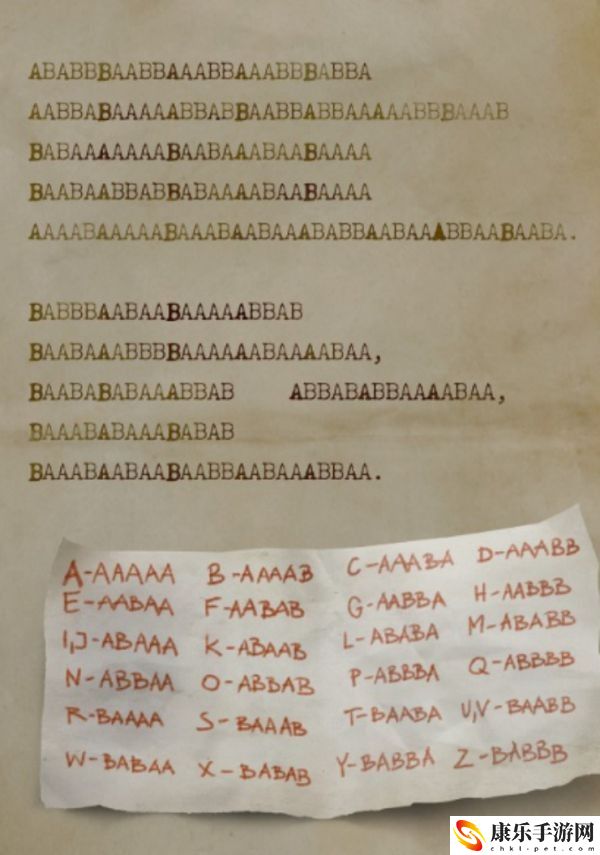 ABABBBAABBAAABBAAABBBABBA
AABBABAAAAABBABBAABBABBAAAAABBBAAAB
BABAAAAAAABAABAAABAABAAAA
BAABAABBABBABAAAABAABAAAA
AAAABAAAAABAAABAABAAABABBAABAAABBAABAABA.
BABBBAABAABAAAAABBAB
BAABAAABBBBAAAAAABAAAABAA,
BAABABABAAABBAB ABBABABBAAAABAA,
BAAABABAAABABAB
BAAABAABAABAABBAABAAABBAA.
A-AAAAA B-AAAAB C-AAABA D-AAABB
E-AABAA F-AABAB G-AABBA H-AABBB
I,J-ABAAA K-ABAAB L-ABABA M-ABABB
N-ABBAA O-ABBAB P-ABBBA Q-ABBBB
R-BAAAA S-BAAAB T-BAABA U,V-BAABB
W-BABAA X-BABAB Y-BABBA Z-BABBB
康乐手游网
chkl-pet.com